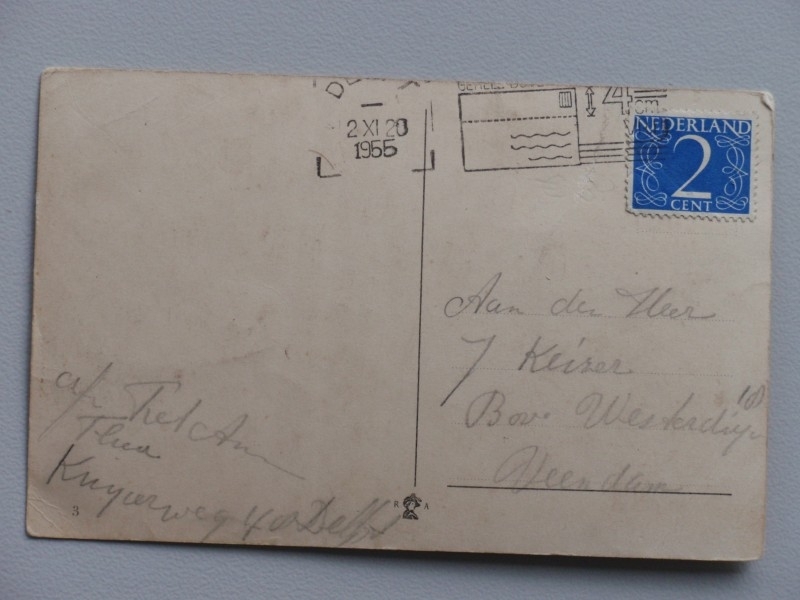 2 XI 20
1955
4 cm
NEDERLAND
2
CENT
Aan den Heer
J Keizer
Bov. Westerdiep
Veendam
a/z
Thea
Kuyperweg 40 Delft
3
R A